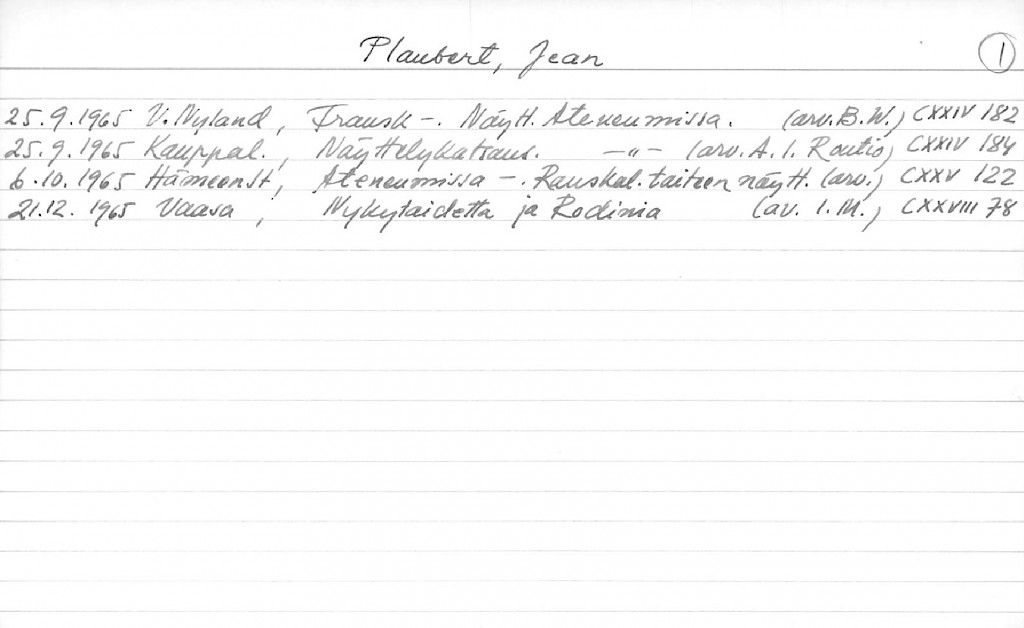 Plaubert, Jean 1
25.9.1965 V. Nyland, Fransk –. Näytt. Ateneumissa. (arv. B.W.) CXXIV 182
25.9.1965 Kauppal., Näyttelykatsaus. –"– (arv. A. I. Routio) CXXIV 184
6.10.1965 Hämeen St, Ateneumissa –. Ranskal. taiteen näytt. (arv.) CXXV 122
21.12.1965 Vaasa, Nykytaidetta ja Rodinia (av. I.M.) CXXVIII 78